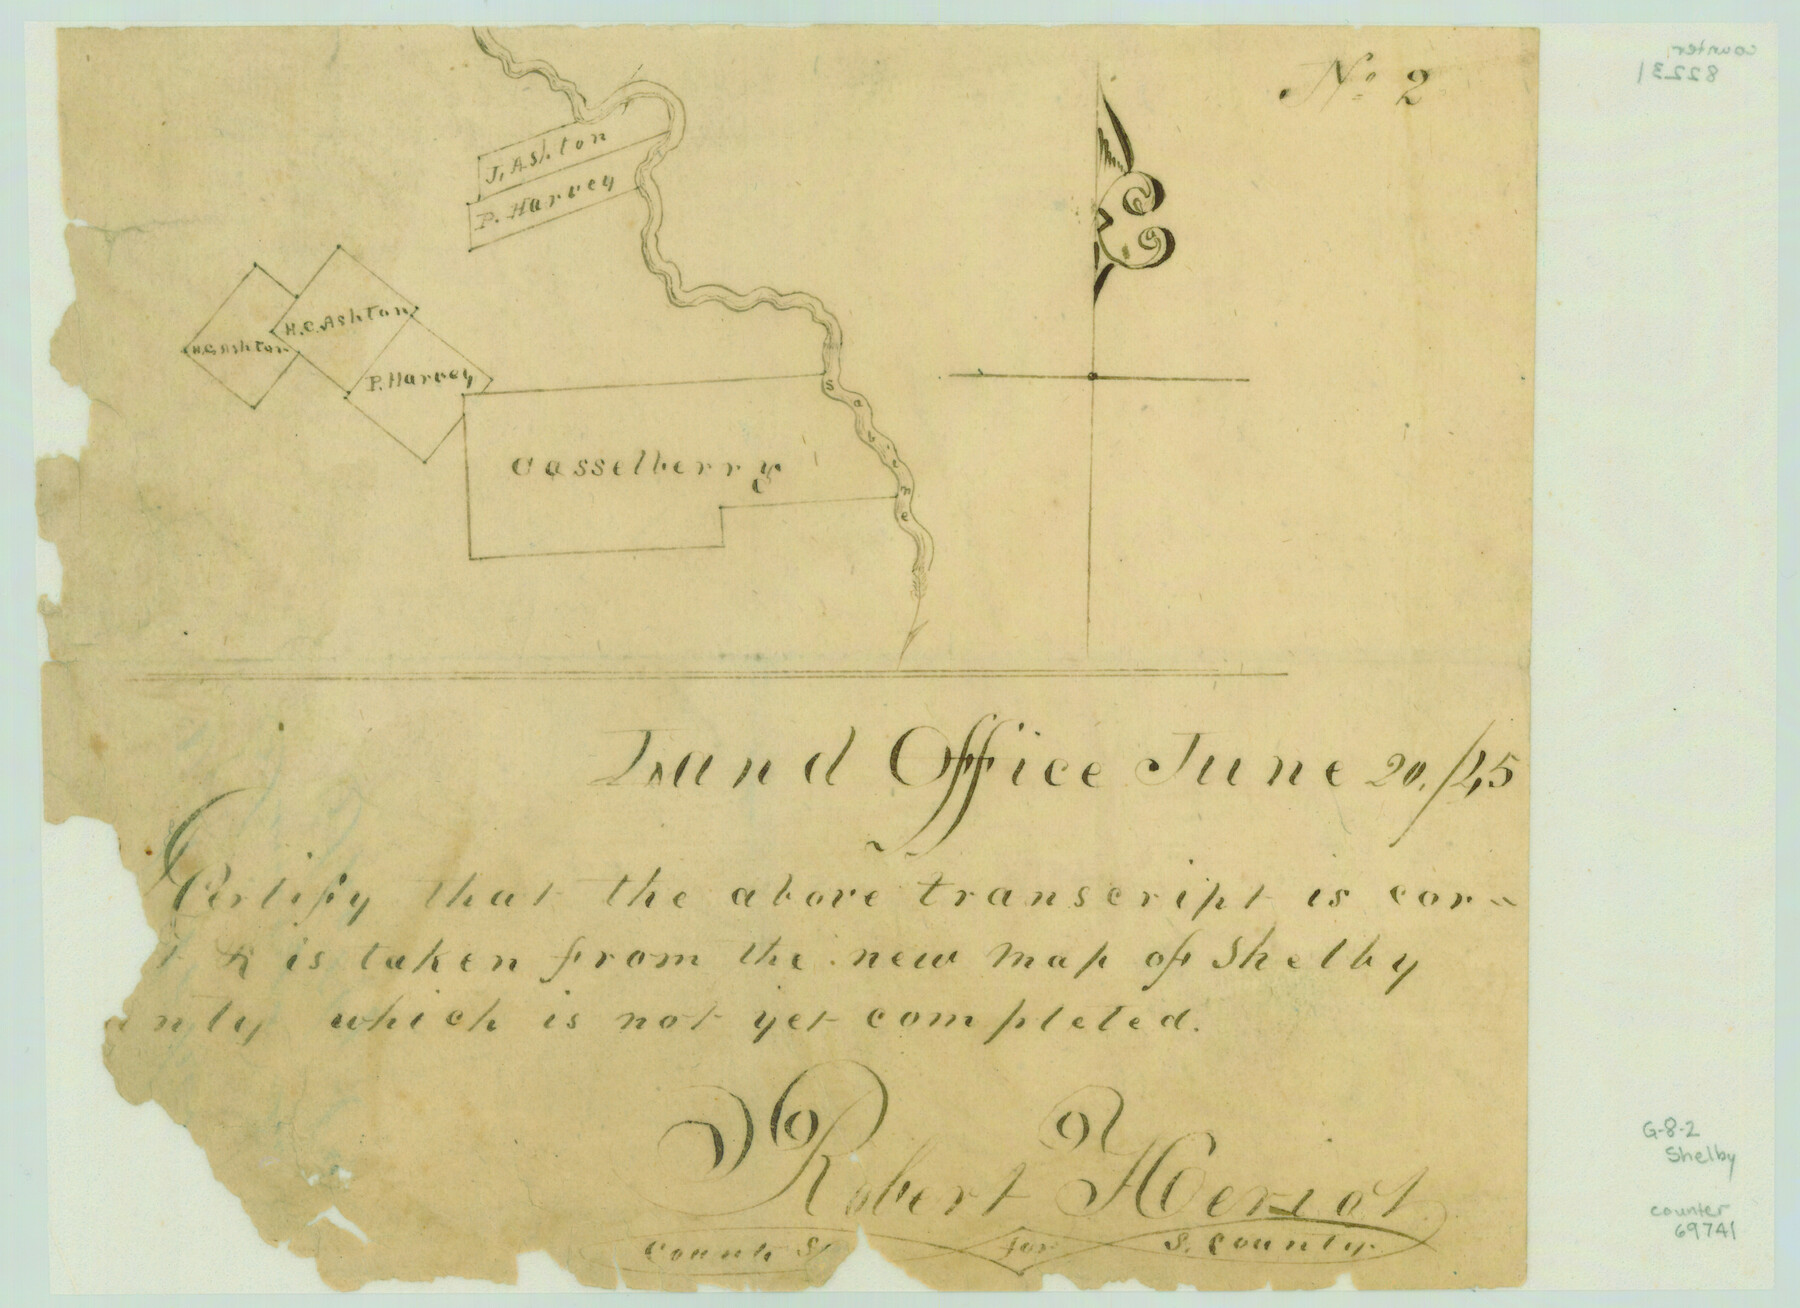 No 2
counter
82231
J. Ashton
P. Harvey
H.C. Ashton
H.C. Ashton
P. Harvey
Casselberry
Sabine
Land Office June 20./45
Certify that the above transcript is cor-
t & is taken from the new map of Shelby
unty which is not yet completed.
Robert Heriot
County S for S. County
G-8-2
Shelby
counter
69741